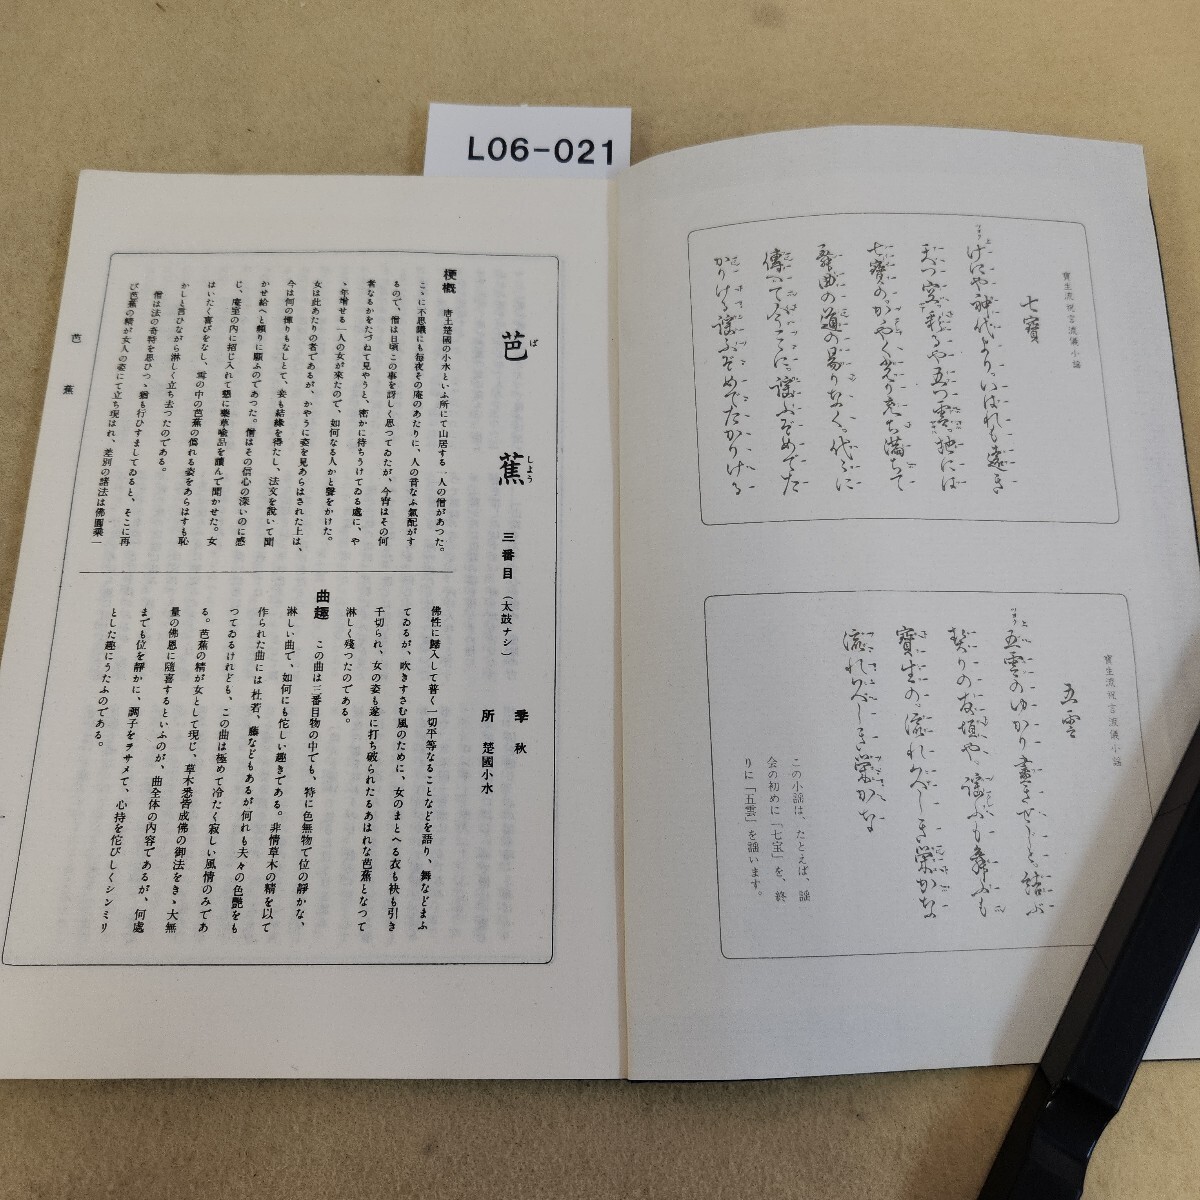 L06-021
寶生流祝言流儀小謡
七寶
げにや神代より。いはれも遠き
天つ空。
七寶の。かゞやく光り充ち満ちて
舞曲の道の曇りなく。代々に
傳へてこゝに。謡ふぞめでた
かりける謡ふぞめでたかりける
寶生流祝言流儀小謡
五雲
五雲のゆかり書きせじと結ぶ
契りの友垣や。謡ふも舞ふも
寶生の。流れ久しき榮かな
流れ久しき榮かな
この小謡は、たとえば、謡
会の初めに「七宝」を、終
りに「五雲」を謡います。
芭蕉
ば
しょう
三番目
(太鼓ナシ)
季 秋
所 楚國小水
梗概 唐土楚國の小水といふ所にて山居する一人の僧があつた。
こゝに不思議にも毎夜その庵のあたりに、人の音なふ氣配がす
るので、僧は日頃この事を訝しく思つてゐたが、今宵はその何
者なるかをたづねて見やうと、密かに待ちうけてゐる處に、や
ゝ年増せる一人の女が來たので、如何なる人かと聲をかけた。
女は此あたりの者であるが、かやうに姿を見あらはされた上は、
今は何の憚りもなしとて、妾も結縁を得たし、法文を説いて聞
かせ給へと頼りに願ふのであつた。僧はその信心の深いのに感
じ、庵室の内に招じ入れて懇に藥草喩品を讀んで聞かせた。女
はいたく喜びをなし、雪の中の芭蕉の僞れる姿をあらはすも恥
かしと言ひながら淋しく立ち去つたのである。
僧は法の奇特を思ひつゝ猶も行ひすましてゐると、そこに再
び芭蕉の精が女人の姿にて立ち現はれ、差別の諸法は佛圓乘一
佛性に歸入して普く一切平等なることなどを語り、舞などまふ
てゐるが、吹きすさむ風のために、女のまとへる衣も袂も引き
千切られ、女の姿も遂に打ち破られたるあはれな芭蕉となつて
淋しく殘つたのである。
曲趣 この曲は三番目物の中でも、特に色無物で位の靜かな、
淋しい曲で、如何にも佗しい趣きである。非情草木の精を以て
作られた曲には杜若、藤などもあるが何れも夫々の色艷をも
つてゐるけれども、この曲は極めて冷たく寂しい風情のみであ
る。芭蕉の精が女として現じ、草木悉皆成佛の御法をきゝ大無
量の佛恩に隨喜するといふのが、曲全体の内容であるが、何處
までも位を靜かに、調子をヲサメて、心持を佗びしくシンミリ
とした趣にうたふのである。
芭蕉